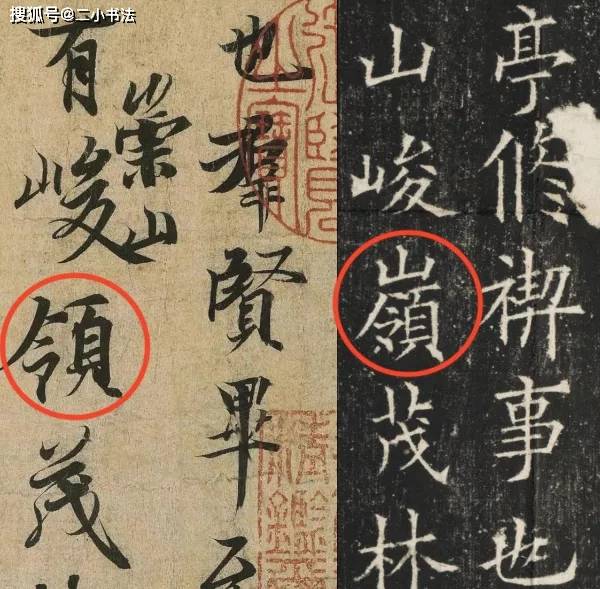 搜狐号@二小书法
也羣賢畢至
有崇山峻領茂
亭修禊事也
山峻嶺茂林